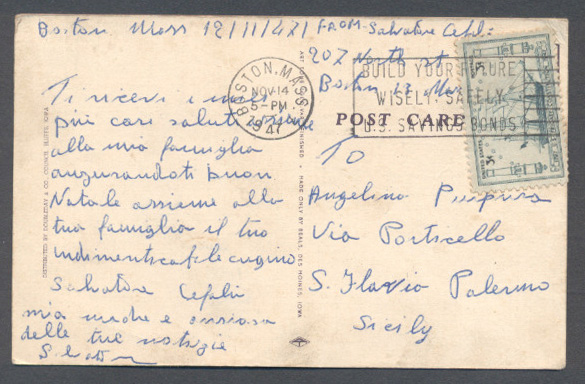 Boston Mass 12/11/47/
FROM- Salvatore Cefl:
207 North st
Boston 13 Mass
BOSTON, MASS
NOV 14
5-PM
1947
BUILD YOUR FUTURE
WISELY-SAFELY
U.S. SAVINGS BONDS
POST CARD
UNITED STATES
3¢
3¢
Ti ricevi i miei
più cari saluti
alla mia famiglia
augurandoti buon
Natale assieme alla
tua famiglia il tuo
cugino
Salvatore Cefalù
mia madre e ansiosa
delle tue notizie
TO
Angelina
Via Porticello
S. Flavia Palermo
Sicily
DISTRIBUTED BY DOUBLEDAY & CO.
MADE ONLY BY BEALS, DES MOINES, IOWA